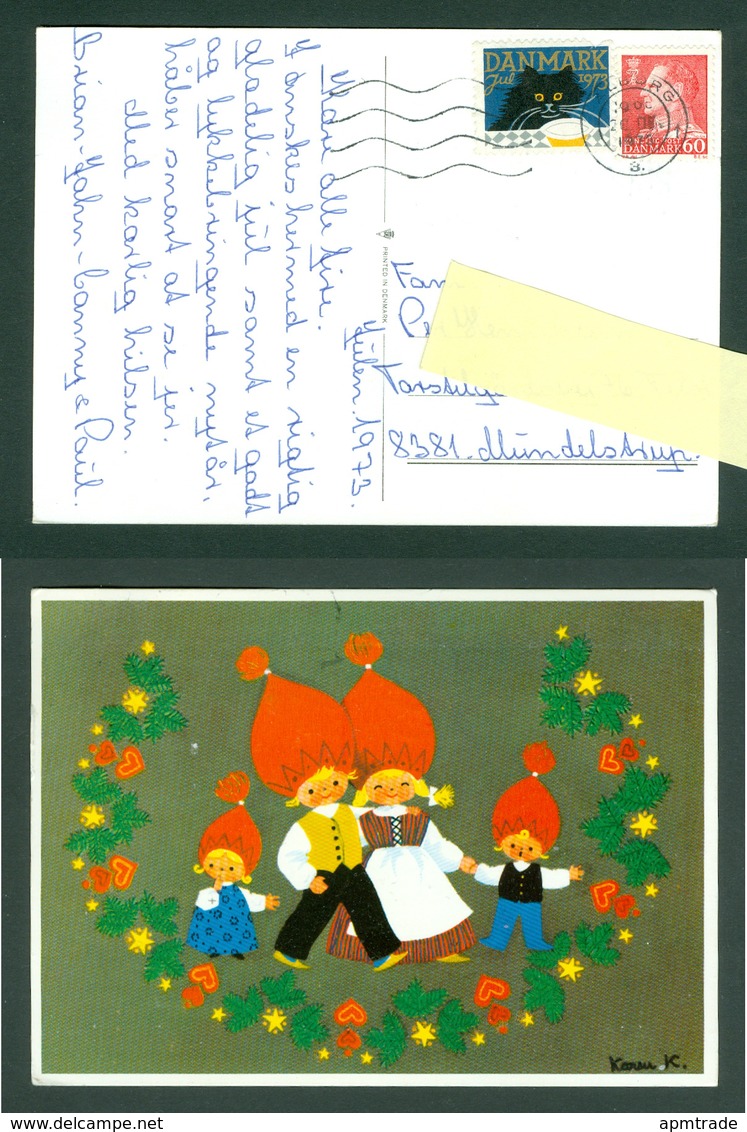 DANMARK
jul 1973
DANMARK 60
3.
PRINTED IN DENMARK
Fam
8381. Mundelstrup.
Julen. 1973.
Kære alle fire.
I ønskes hermed en rigtig
glædelig jul samt et godt
og lykkebringende nytår,
håber snart at se jer.
Med kærlig hilsen.
Brian-John-Conny & Poul.
Karen K.
© apmtrade